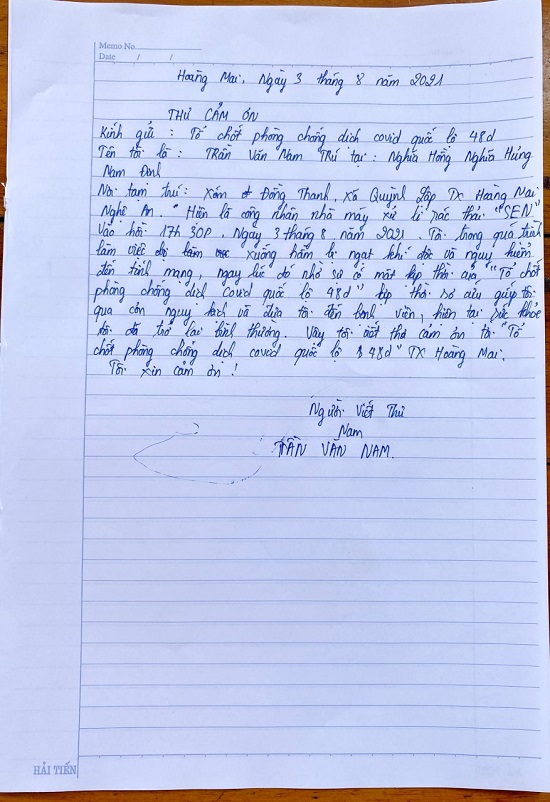 Memo No.
Date / /
Hoàng Mai, Ngày 3 tháng 8 năm 2021
THƯ CẢM ƠN
Kính gửi : Tổ chốt phòng chống dịch covid quốc lộ 48d
Tên tôi là : TRần Văn Nam TRú tại : Nghĩa Hồng Nghĩa Hưng
Nam Định
Nơi tạm trú : Xóm Đồng Thanh, Xã Quỳnh Lập TX Hoàng Mai
Nghệ An. Hiện là công nhân nhà máy xử lí rác thải "SEN"
Vào hồi 17h 30P. Ngày 3 tháng 8 năm 2021. Tôi trong quá trình
làm việc xuống hầm bị ngạt khí độc và nguy hiểm
đến tính mạng, ngay lúc đó nhờ sự có mặt kịp thời của "Tổ chốt
phòng chống dịch Covid quốc lộ 48d" kịp thời sơ cứu giúp tôi
qua cơn nguy kịch và đưa tôi đến bệnh viện, hiện tại sức khỏe
tôi đã trở lại bình thường. Vậy tôi viết thư cảm ơn tới "Tổ
chốt phòng chống dịch covid quốc lộ 48d" TX Hoàng Mai.
Tôi xin cảm ơn !
Người Viết Thư
Nam
TRẦN VĂN NAM.
HẢI TIẾN